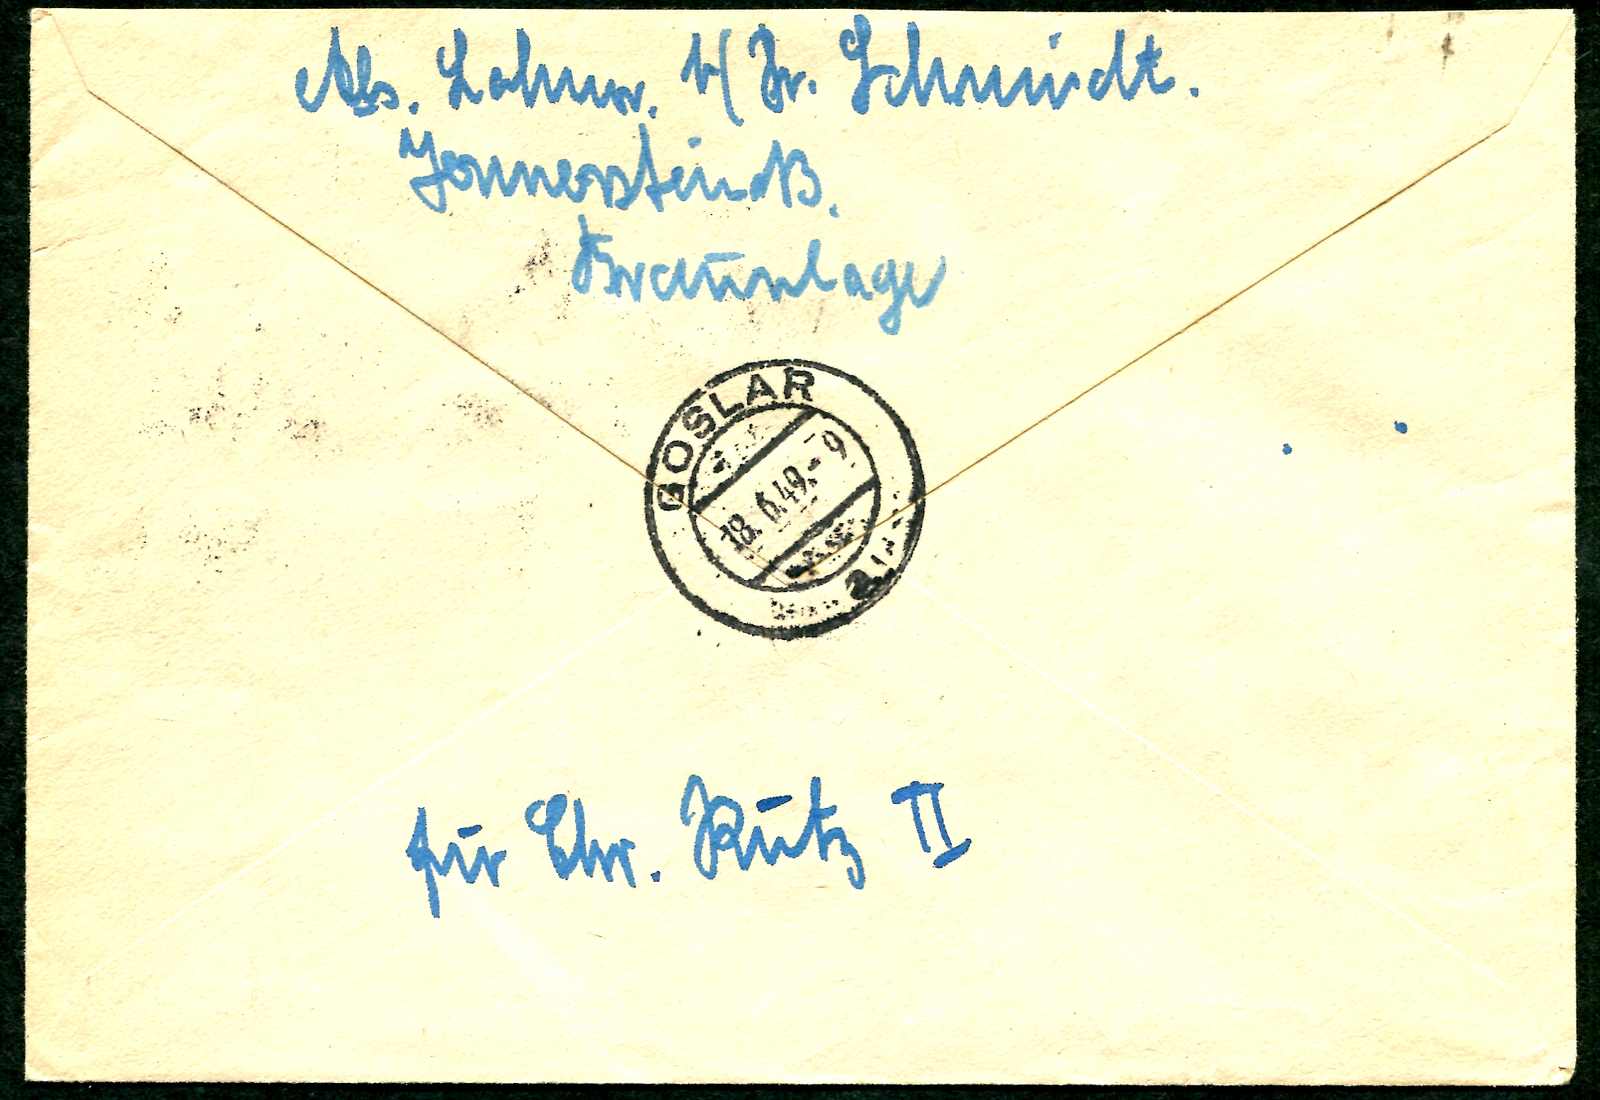 Abs. Lohmr. b/Fr. Schmidt.
Braunlage
GOSLAR
18.6.49.-9
a
für Chr. Kütz II